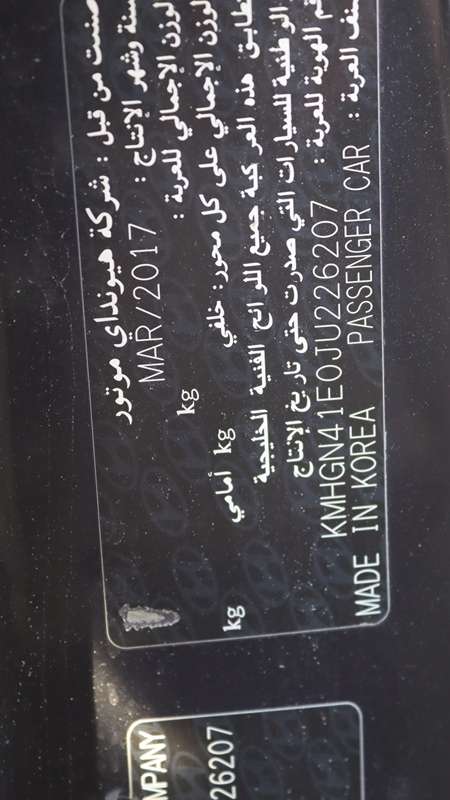 صنعت من قبل : شركة هيونداي موتور
سنة وشهر الإنتاج : MAR/2017
الوزن الإجمالي للعربة : kg
الوزن الإجمالي على كل محور: خلفي kg أمامي kg
تطابق هذه المركبة جميع اللوائح الفنية الخليجية
و الوطنية للسيارات التي صدرت حتى تاريخ الإنتاج
رقم الهوية للعربة : KMHGN41E0JU226207
صنف العربة : PASSENGER CAR MADE IN KOREA
MPANY
26207